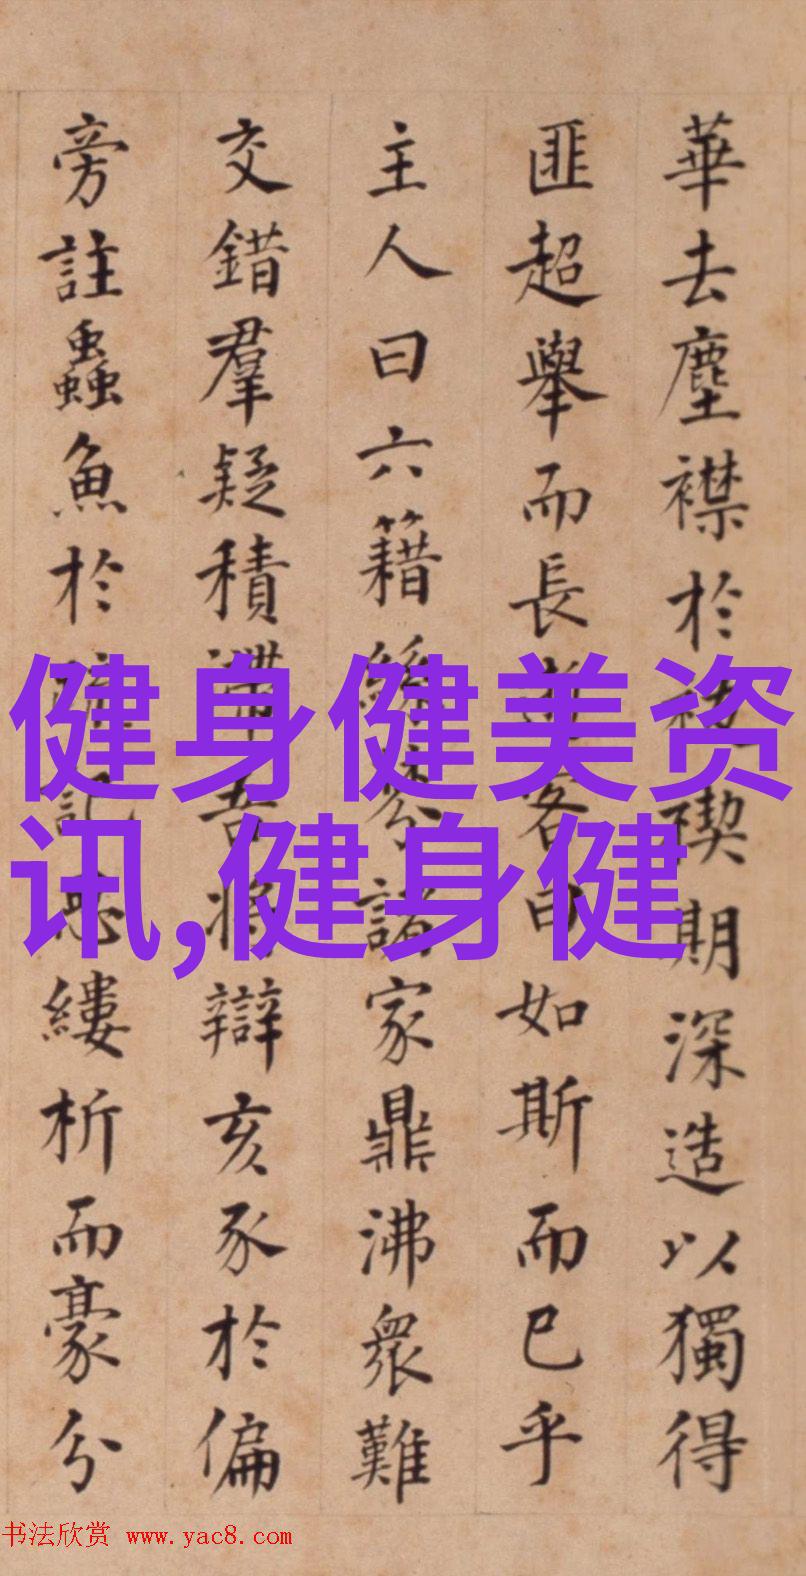 華去塵襟於初契期深造以獨得
匪超舉而長逝客曰如斯而已乎
主人曰六籍絲棼諸家鼎沸衆難
交錯羣疑積滯吾將辯亥豕於偏
旁註蟲魚於疏記悉縷析而豪分
健身健美资
讯,健身健
书法欣赏 www.yac8.com